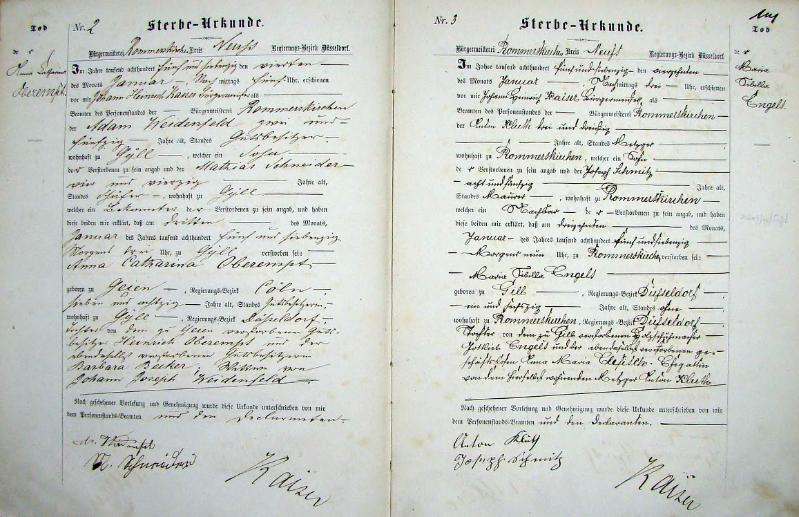 Tod
der
Anna Catharina
Oberempt.
Nr. 2
Sterbe-Urkunde.
Bürgermeisterei Rommerskirchen Kreis Neuss Regierungs-Bezirk Düsseldorf.
Im Jahre tausend achthundert fünf und siebenzig den vierten
des Monats Januar mittags fünf Uhr, erschienen
vor mir Johann Heinrich Kaiser Bürgermeister als
Beamten des Personenstandes der Bürgermeisterei Rommerskirchen
der Adam Weidenfeld zwei und
fünfzig Jahre alt, Standes Gutsbesitzer
wohnhaft zu Gyll, welcher ein Sohn
der Verstorbenen zu sein angab und der Mathias Schneider
vier und vierzig Jahre alt,
Standes wohnhaft zu Gyll
welcher ein Bekannter der Verstorbenen zu sein angab, und haben
diese beiden mir erklärt, daß am dritten des Monats
Januar des Jahres tausend achthundert fünf und siebenzig
Morgens drei Uhr, zu Gyll verstorben sei:
Anna Catharina Oberempt
geboren zu Geyen, Regierungs-Bezirk Cöln
sieben und achtzig Jahre alt, Standes Gutsbesitzerin
wohnhaft zu Gyll, Regierungs-Bezirk Düsseldorf
Tochter von dem zu Geyen verstorbenen Guts-
besitzer Heinrich Oberempt und der
ebendaselbst verstorbenen Gutsbesitzerin
Barbara Becker Wittwe von
Johann Joseph Weidenfeld
Nach geschehener Vorlesung und Genehmigung wurde diese Urkunde unterschrieben von mir
dem Personenstands-Beamten und den Declaranten.
M. Schneider
Kaiser
Nr. 3
Sterbe-Urkunde.
Bürgermeisterei Rommerskirchen Kreis Neuss Regierungs-Bezirk Düsseldorf.
Im Jahre tausend achthundert fünf und siebenzig den vierzehnten
des Monats Januar Nachmittags drei Uhr, erschienen
vor mir Johann Heinrich Kaiser Bürgermeister als
Beamten des Personenstandes der Bürgermeisterei Rommerskirchen
der Anton Kluth drei und dreißig
Jahre alt, Standes Metzger
wohnhaft zu Rommerskirchen, welcher ein Sohn
der Verstorbenen zu sein angab und der Joseph Schmitz
acht und fünfzig Jahre alt,
Standes Maurer, wohnhaft zu Rommerskirchen
welcher ein Nachbar der Verstorbenen zu sein angab, und haben
diese beiden mir erklärt, daß am dreizehnten des Monats
Januar des Jahres tausend achthundert fünf und siebenzig
Morgens neun Uhr, zu Rommerskirchen verstorben sei:
Maria Sibilla Engels
geboren zu Gill, Regierungs-Bezirk Düsseldorf
ein und sechszig Jahre alt, Standes ohne
wohnhaft zu Rommerskirchen, Regierungs-Bezirk Düsseldorf
Tochter von dem zu Gill verstorbenen Holzschuhmacher
Engels und der ebendaselbst verstorbenen ge-
schäftslosen Anna Maria Ehegattin
von dem hierselbst wohnenden Metzger Anton Kluth
Nach geschehener Vorlesung und Genehmigung wurde diese Urkunde unterschrieben von mir
dem Personenstands-Beamten und den Declaranten.
Anton Kluth
Joseph Schmitz
Kaiser
Tod
der
Maria
Sibilla
Engels